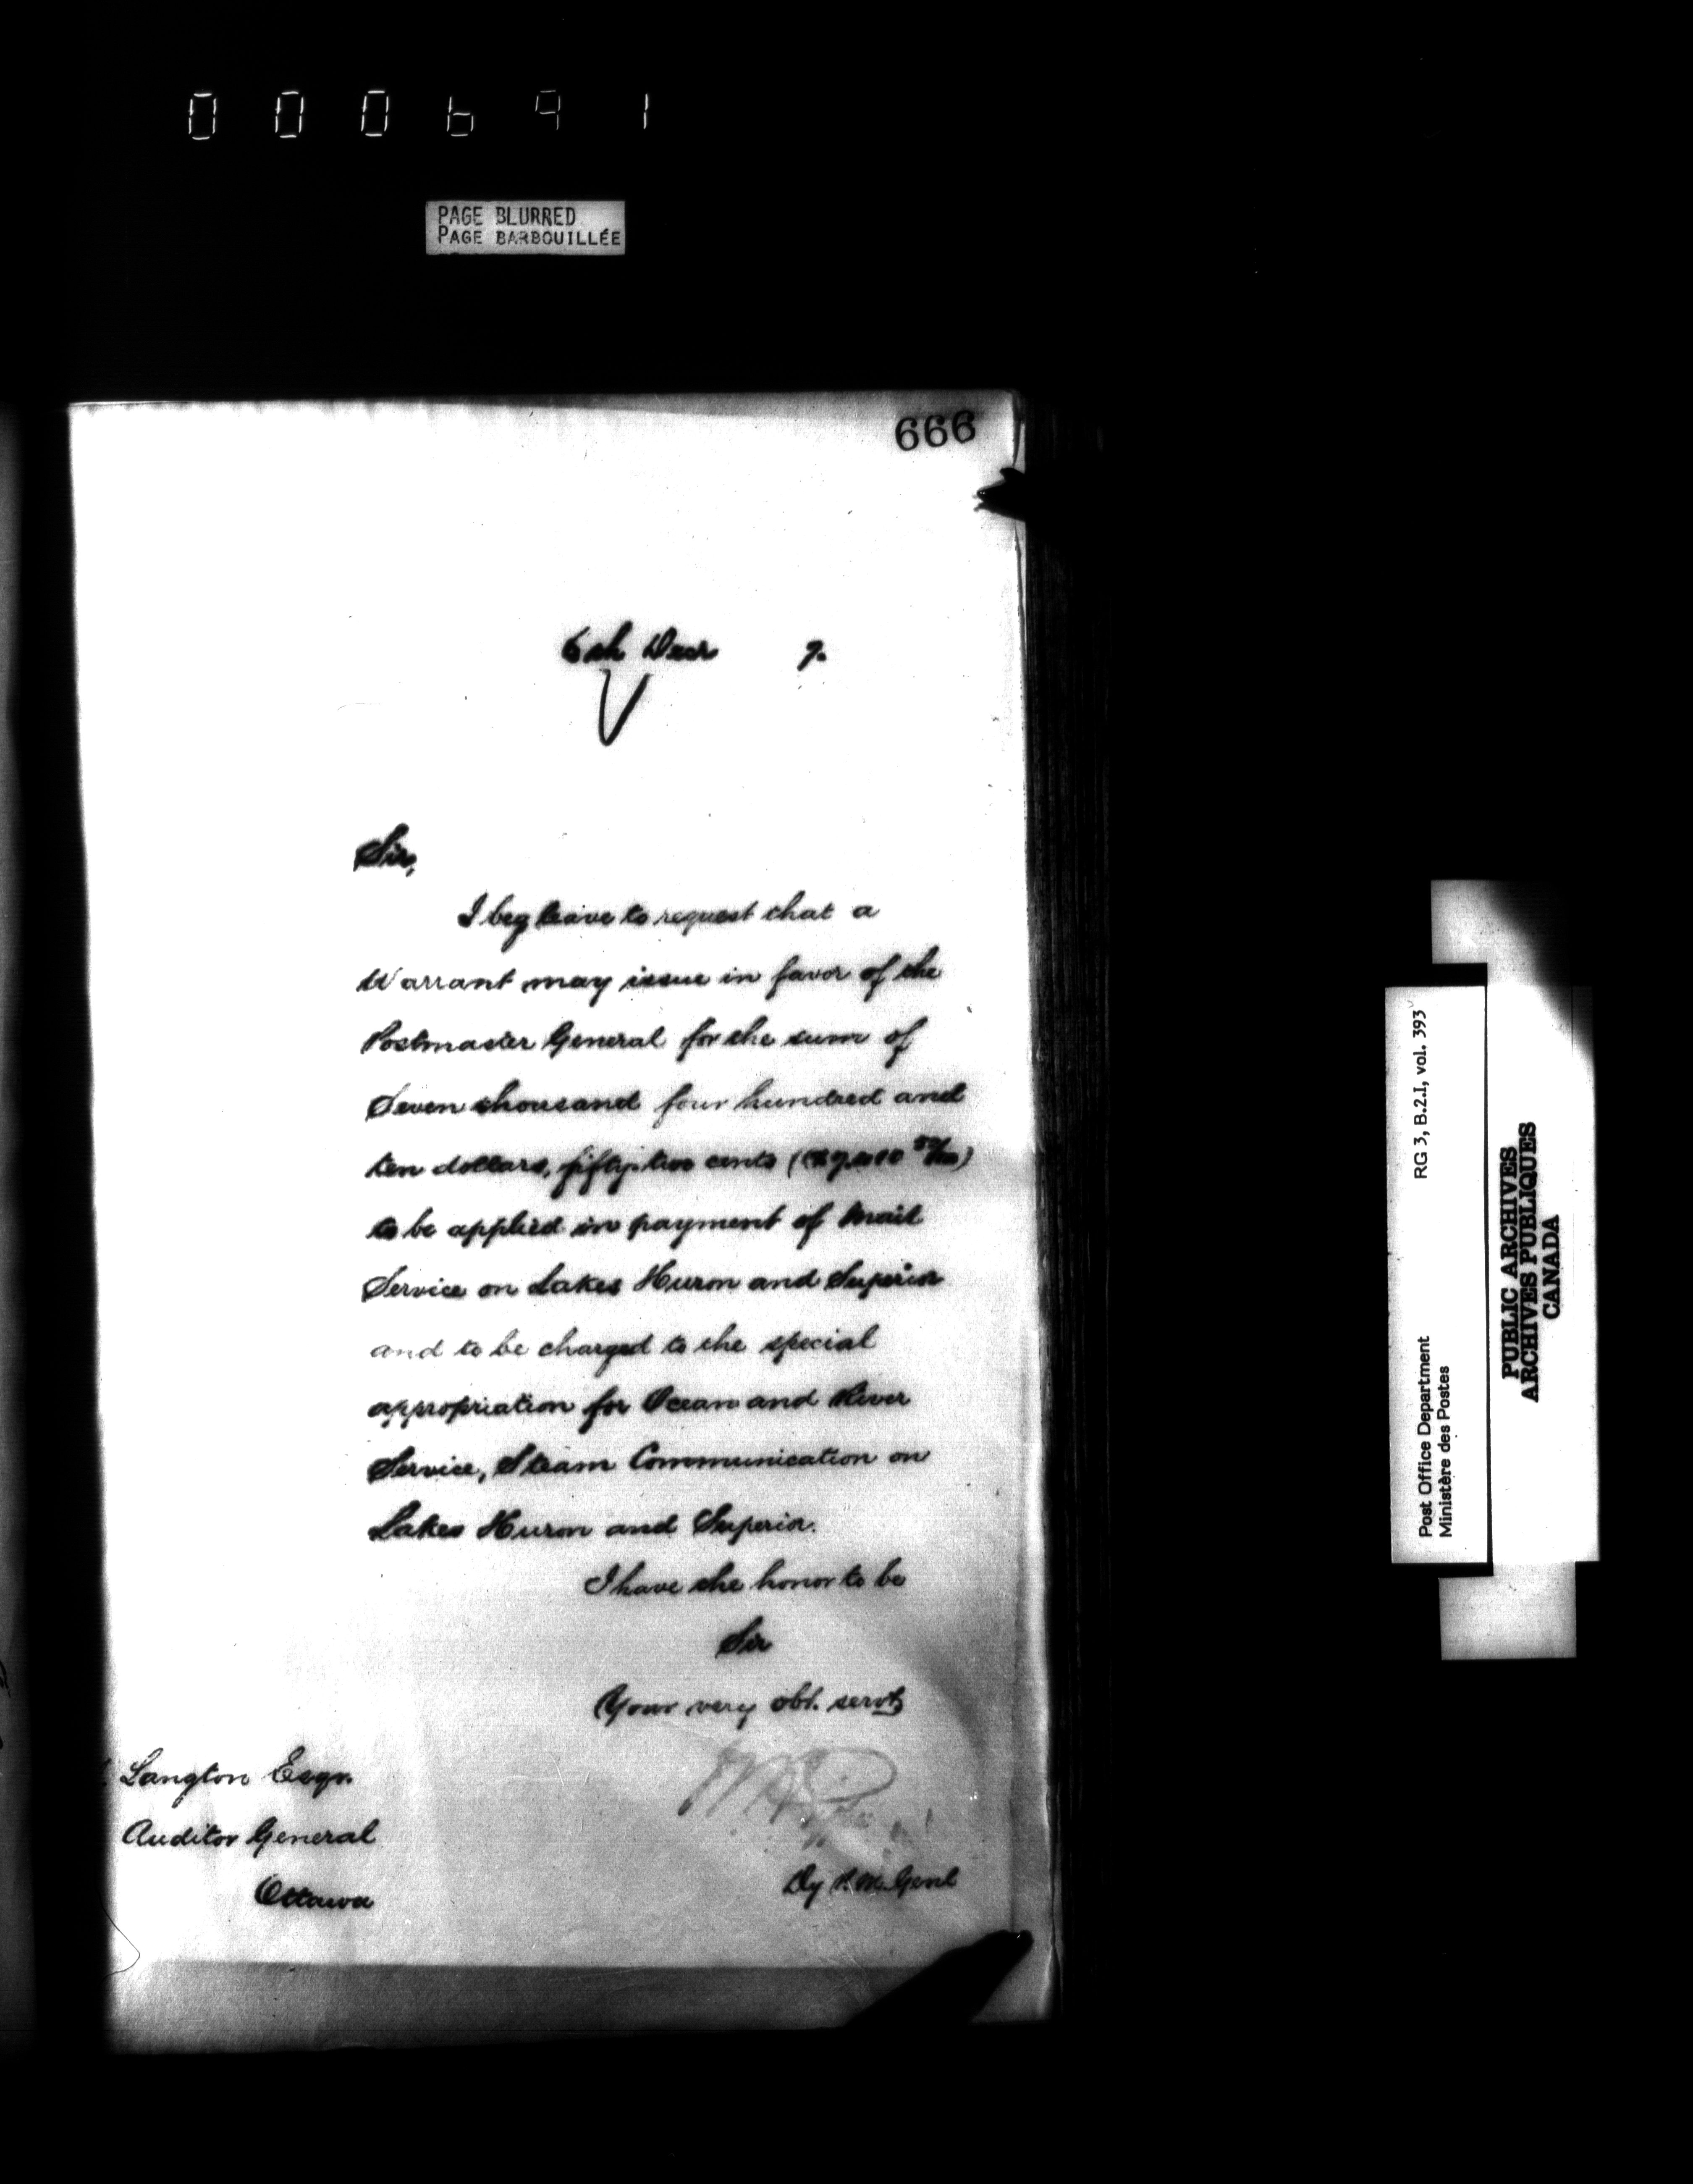 000691
PAGE BLURRED
PAGE BARBOUILLÉE
666
6th Decr 7.
Sir,
I beg leave to request that a
Warrant may issue in favor of the
Postmaster General for the sum of
Seven thousand four hundred and
ten dollars, fifty two cents ($7,410 52/100)
to be applied in payment of Mail
Service on Lakes Huron and Superior
and to be charged to the special
appropriation for Ocean and River
Service, Steam Communication on
Lakes Huron and Superior.
I have the honor to be
Sir
Your very obt. servt,
Langton Esqr.
Auditor General
Ottawa
Dy P.M. Genl
RG 3, B.2.I, vol. 393
Post Office Department
Ministère des Postes
PUBLIC ARCHIVES
ARCHIVES PUBLIQUES
CANADA